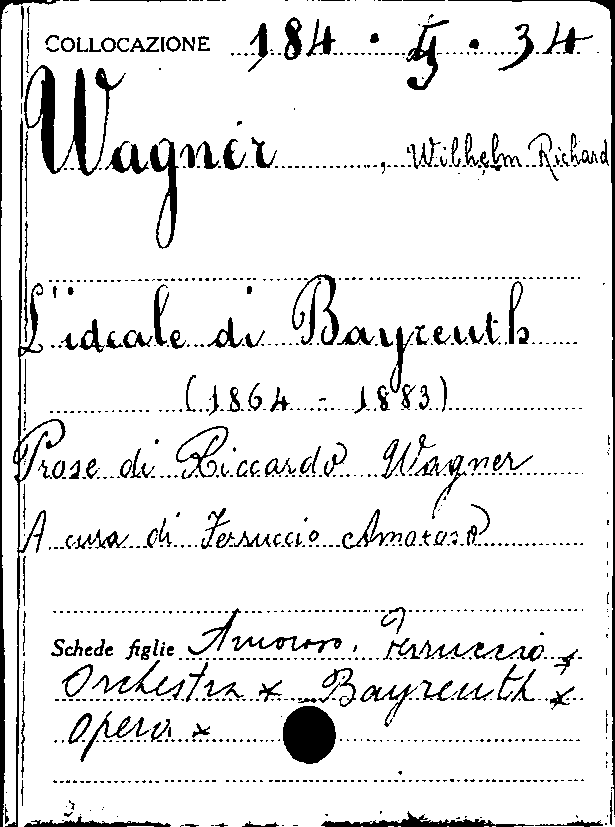 COLLOCAZIONE 184 · · 34
Wagner, Wilhelm Richard
L'ideale di Bayreuth
(1864 - 1883)
Prose di Riccardo Wagner
A cura di Ferruccio Amoroso
Schede figlie Amoroso, Ferruccio x
Orchestra x Bayreuth x
Opera x